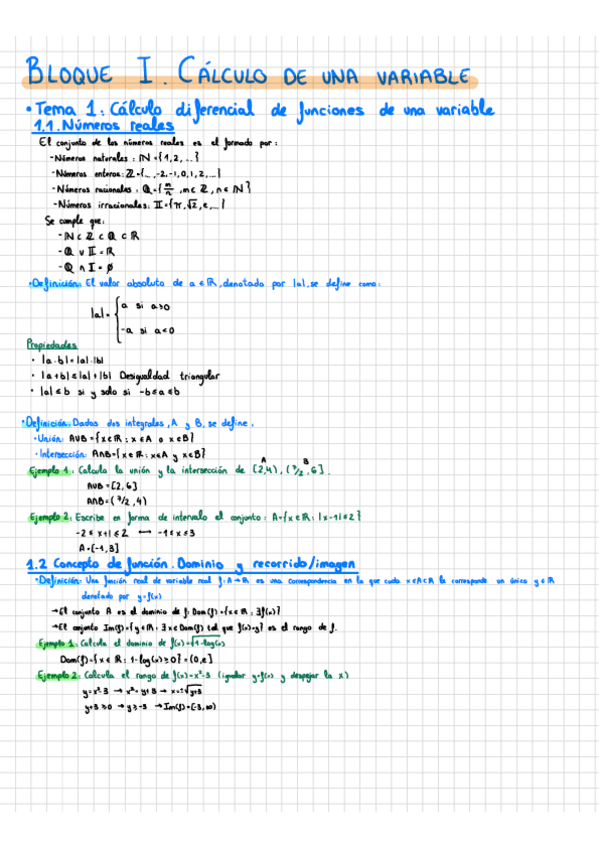 BLOQUE I. CÁLCULO DE UNA VARIABLE
• Tema 1: Cálculo diferencial de funciones de una variable
1.1. Números reales
El conjunto de los números reales es el formado por:
- Números naturales: ℕ={1,2,...}
- Números enteros: ℤ={...,-2,-1,0,1,2,...}
- Números racionales: ℚ={m/n, m∈ℤ, n∈ℕ}
- Números irracionales: 𝕀={π,√2,e,...}
Se cumple que:
- ℕ⊂ℤ⊂ℚ⊂ℝ
- ℚ∪𝕀=ℝ
- ℚ∩𝕀=∅
• Definición: El valor absoluto de a∈ℝ, denotado por |a|, se define como:
a si a≥0
|a|={
-a si a<0
Propiedades
• |a·b|=|a|·|b|
• |a+b|≤|a|+|b| Desigualdad triangular
• |a|≤b si y solo si -b≤a≤b
• Definición: Dadas dos integrales, A y B, se define.
• Unión: A∪B={x∈ℝ: x∈A o x∈B}
• Intersección: A∩B={x∈ℝ: x∈A y x∈B}
A B
Ejemplo 1: Calcula la unión y la intersección de [2,4), (3/2,6].
A∪B=[2,6]
A∩B=(3/2,4)
Ejemplo 2: Escribe en forma de intervalo el conjunto: A={x∈ℝ: |x-1|≤2}
-2≤x+1≤2 ⟷ -1≤x≤3
A=[-1,3]
1.2 Concepto de función. Dominio y recorrido/imagen
• Definición: Una función real de variable real f:A→ℝ es una correspondencia en la que cada x∈A⊂ℝ le corresponde un único y∈ℝ
denotado por y=f(x)
→El conjunto A es el dominio de f: Dom(f)={x∈ℝ: ∃f(x)}
→El conjunto Im(f)={y∈ℝ: ∃x∈Dom(f) tal que f(x)=y} es el rango de f.
Ejemplo 1: Calcula el dominio de f(x)=√1-log(x)
Dom(f)={x∈ℝ: 1-log(x)≥0}=(0,e]
Ejemplo 2: Calcula el rango de f(x)=x²-3 (igualar y=f(x) y despejar la x)
y=x²-3 → x²=y+3 → x=±√y+3
y+3≥0 → y≥-3 → Im(f)=[-3,∞)